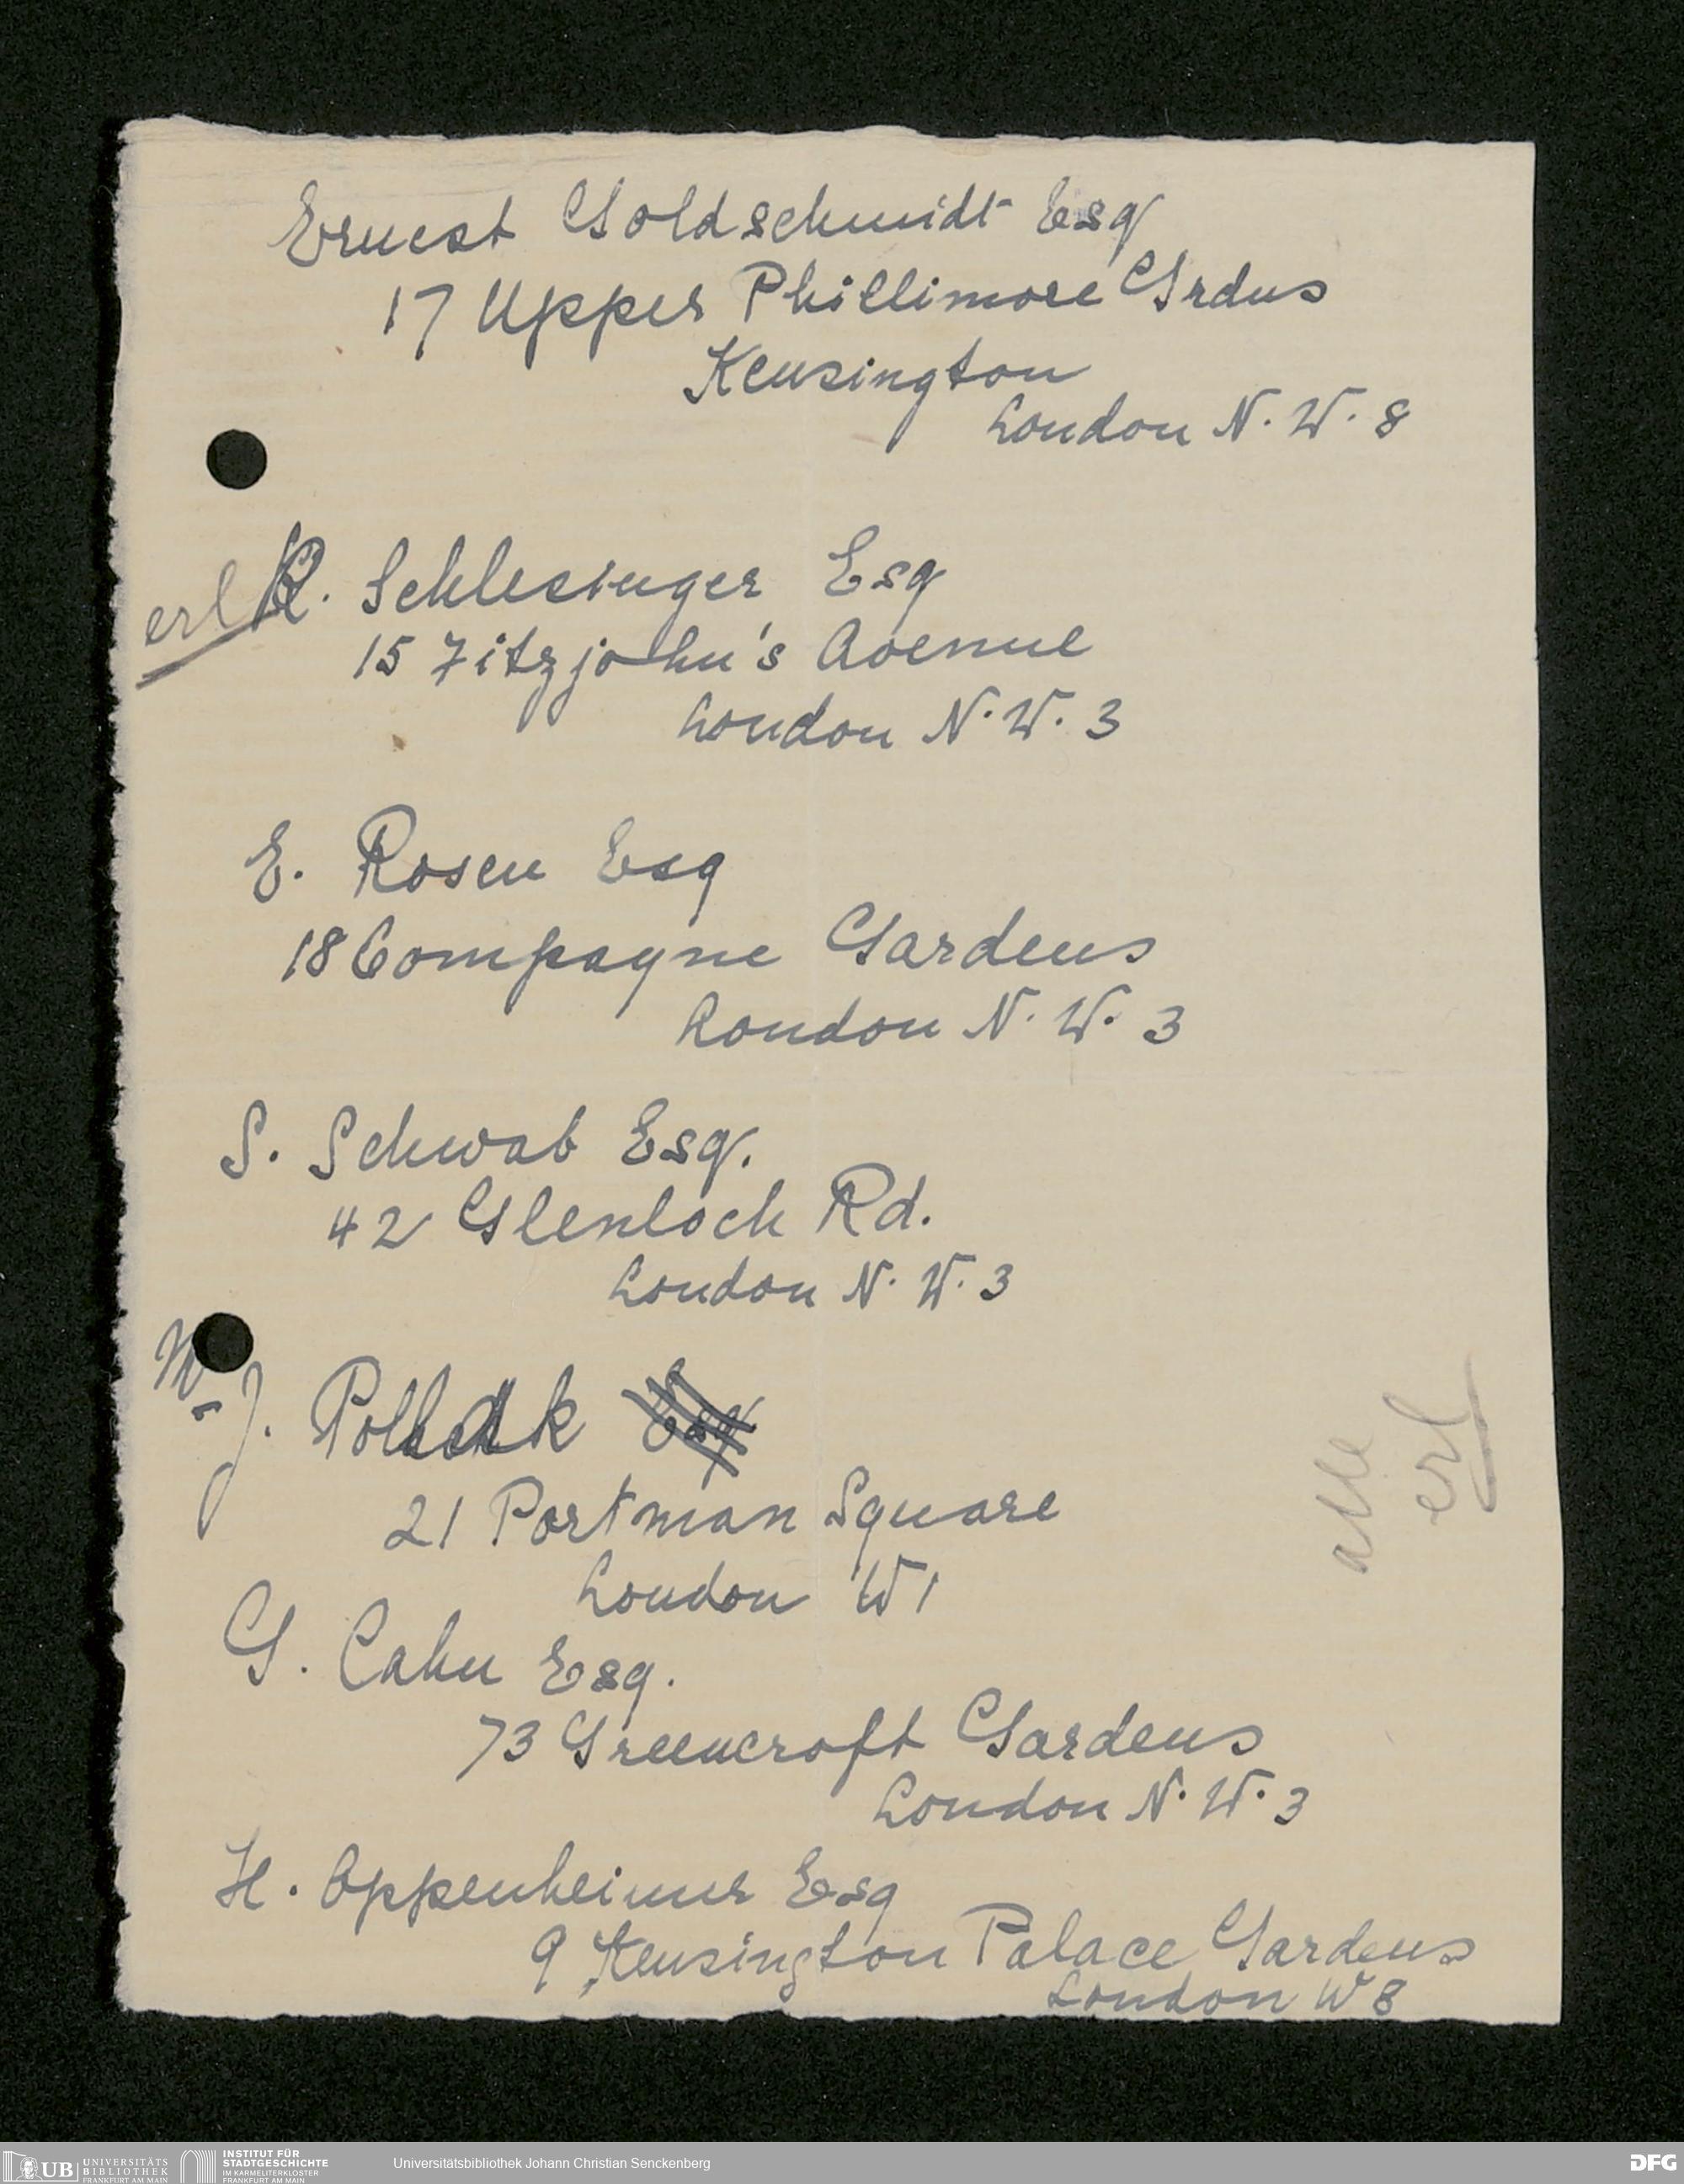 Ernest Goldschmidt Esq
17 Upper Phillimore Grdns
Kensington
London N. W. 8
erl R. Schlesinger Esq
15 Fitzjohn's Avenue
London N. W. 3
E. Rosen Esq
18 Compagne Gardens
London N. W. 3
S. Schwab Esq.
42 Glenloch Rd.
London N. W. 3
J. Pollak Esq
21 Portman Square
London W1
alle
erl
G. Cahn Esq.
73 Greencroft Gardens
London N. W. 3
H. Oppenheimer Esq
9 Kensington Palace Gardens
London W 8
UB UNIVERSITÄTS BIBLIOTHEK FRANKFURT AM MAIN
INSTITUT FÜR STADTGESCHICHTE IM KARMELITERKLOSTER FRANKFURT AM MAIN
Universitätsbibliothek Johann Christian Senckenberg
DFG